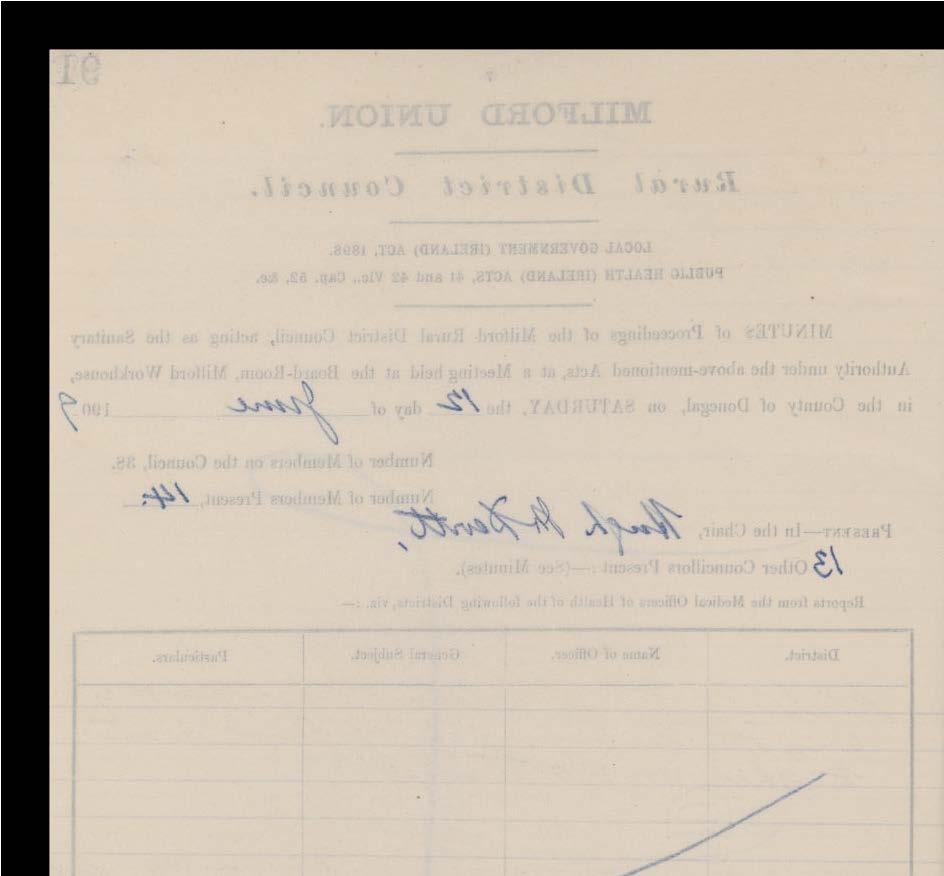 91
MILFORD UNION.
Rural District Council.
LOCAL GOVERNMENT (IRELAND) ACT, 1898.
PUBLIC HEALTH (IRELAND) ACTS, 41 and 42 Vic., Cap. 52, &c.
MINUTES of Proceedings of the Milford Rural District Council, acting as the Sanitary
Authority under the above-mentioned Acts, at a Meeting held at the Board-Room, Milford Workhouse,
in the County of Donegal, on SATURDAY, the 12 day of June 1909
Number of Members on the Council, 38.
Number of Members Present, 14.
PRESENT—In the Chair, Hugh McDevitt,
13 Other Councillors Present :—(See Minutes).
Reports from the Medical Officers of Health of the following Districts, viz. :—
District. Name of Officer. General Subject. Particulars.